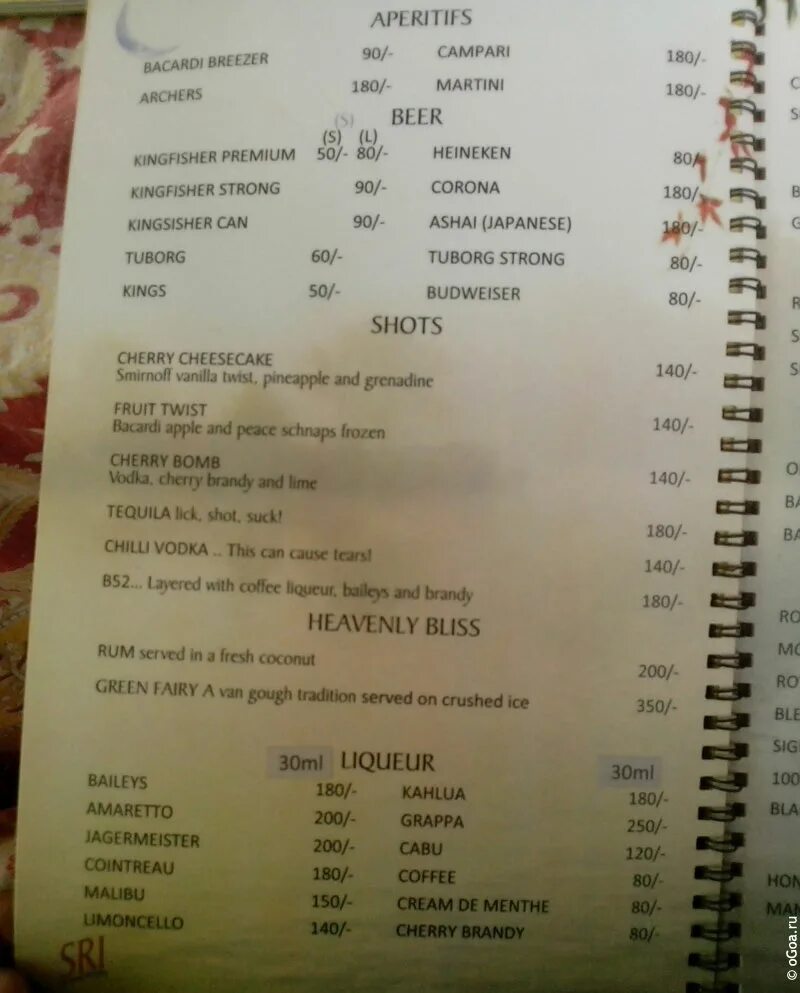 APERITIFS
BACARDI BREEZER 90/- CAMPARI 180/-
ARCHERS 180/- MARTINI 180/-
BEER
(S)
(S) (L)
KINGFISHER PREMIUM 50/- 80/- HEINEKEN 80/-
KINGFISHER STRONG 90/- CORONA 180/-
KINGSISHER CAN 90/- ASHAI (JAPANESE) 180/-
TUBORG 60/- TUBORG STRONG 80/-
KINGS 50/- BUDWEISER 80/-
SHOTS
CHERRY CHEESECAKE
Smirnoff vanilla twist, pineapple and grenadine 140/-
FRUIT TWIST
Bacardi apple and peace schnaps frozen 140/-
CHERRY BOMB
Vodka, cherry brandy and lime 140/-
TEQUILA lick, shot, suck! 180/-
CHILLI VODKA .. This can cause tears! 140/-
B52... Layered with coffee liqueur, baileys and brandy 180/-
HEAVENLY BLISS
RUM served in a fresh coconut 200/-
GREEN FAIRY A van gough tradition served on crushed ice 350/-
30ml LIQUEUR 30ml
BAILEYS 180/- KAHLUA 180/-
AMARETTO 200/- GRAPPA 250/-
JAGERMEISTER 200/- CABU 120/-
COINTREAU 180/- COFFEE 80/-
MALIBU 150/- CREAM DE MENTHE 80/-
LIMONCELLO 140/- CHERRY BRANDY 80/-
SRI
© oGoa.ru